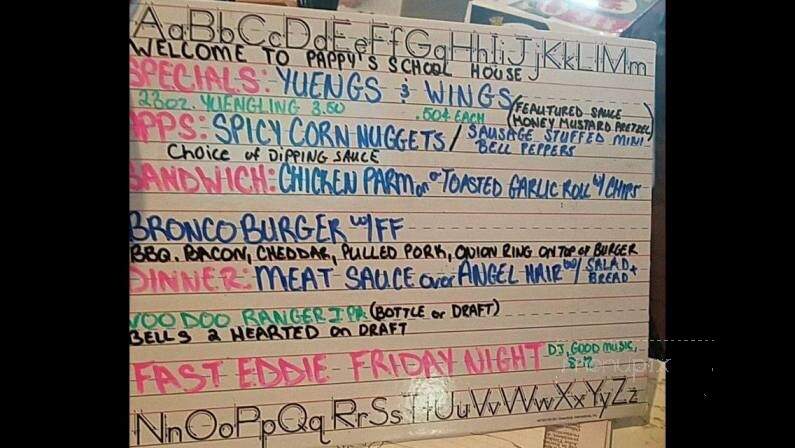 AaBbCcDdEeFfGgHhIiJjKkLlMm
WELCOME TO PAPPY'S SCHOOL HOUSE
SPECIALS: YUENGS & WINGS
23oz. YUENGLING 3.50 .50¢ EACH (FEAUTURED SAUCE
(HONEY MUSTARD PRETZEL)
APPS: SPICY CORN NUGGETS / SAUSAGE STUFFED MINI
BELL PEPPERS
CHOICE of DIPPING SAUCE
SANDWICH: CHICKEN PARM on a TOASTED GARLIC ROLL w/ CHIPS
BRONCO BURGER w/FF
BBQ, BACON, CHEDDAR, PULLED PORK, ONION RING ON TOP of BURGER
DINNER: MEAT SAUCE over ANGEL HAIR w/ SALAD +
BREAD
VOO DOO RANGER IPA (BOTTLE or DRAFT)
BELLS 2 HEARTED on DRAFT
FAST EDDIE FRIDAY NIGHT DJ, GOOD MUSIC,
8-12
menupix
NnOoPpQqRrSsTtUuVvWwXxYyZz